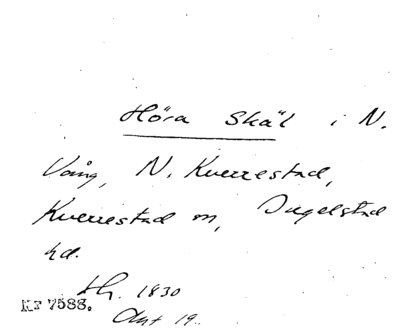 Höra Skäl i N.
Vång, N. Kverrestad,
Kverrestad sn, Ingelstad
hd.
Hr. 1830
Kr 7588.
Akt 19.